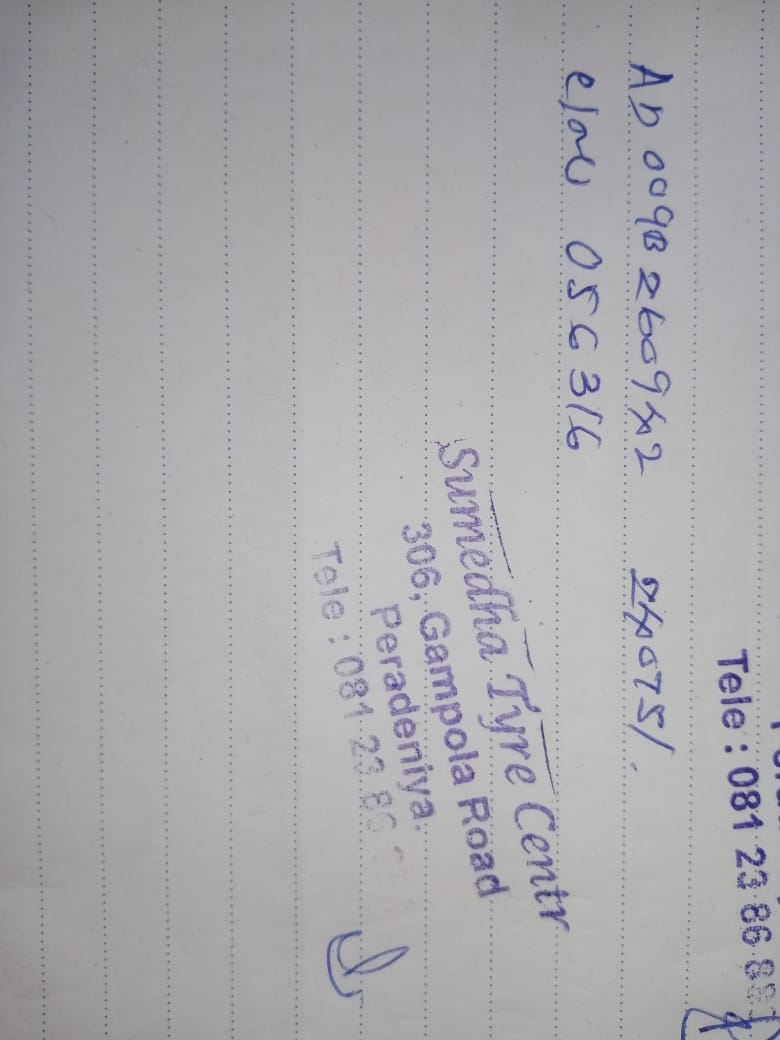 Tele : 081 23 86 88
AD 009B260942 24075/.
056316
Sumedha Tyre Centr
306, Gampola Road
Peradeniya.
Tele : 081 23 86